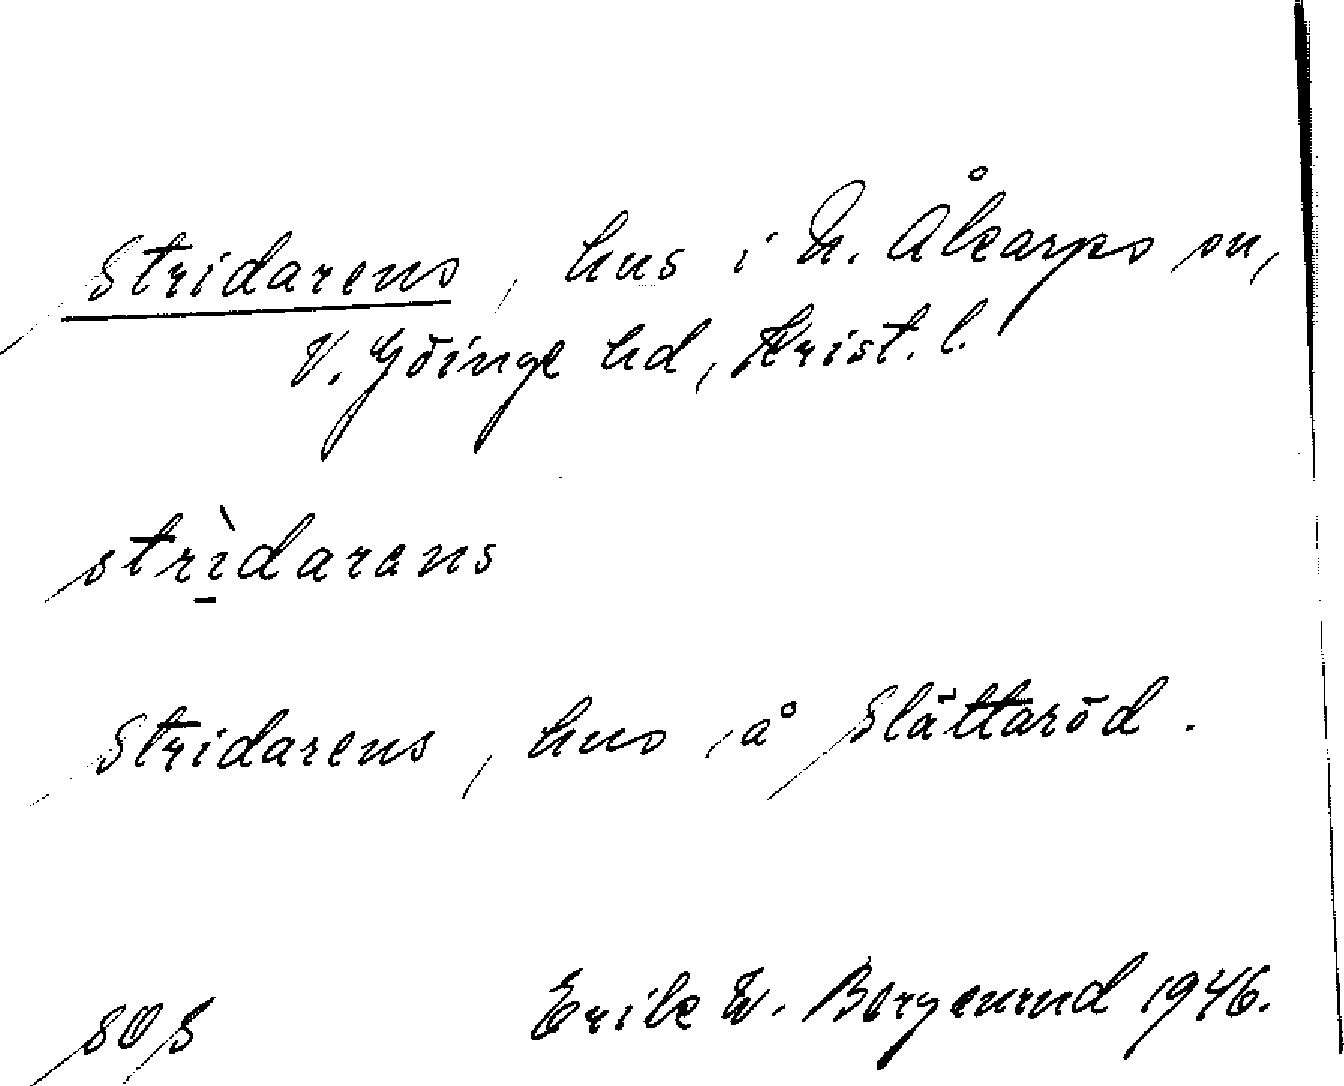 Stridarens, hus i N. Åkarps sn,
V. Göinge hd, Krist. l.
strìdarens
Stridarens, hus å Slättaröd.
SOS Erik W. Borgenrud 1946.